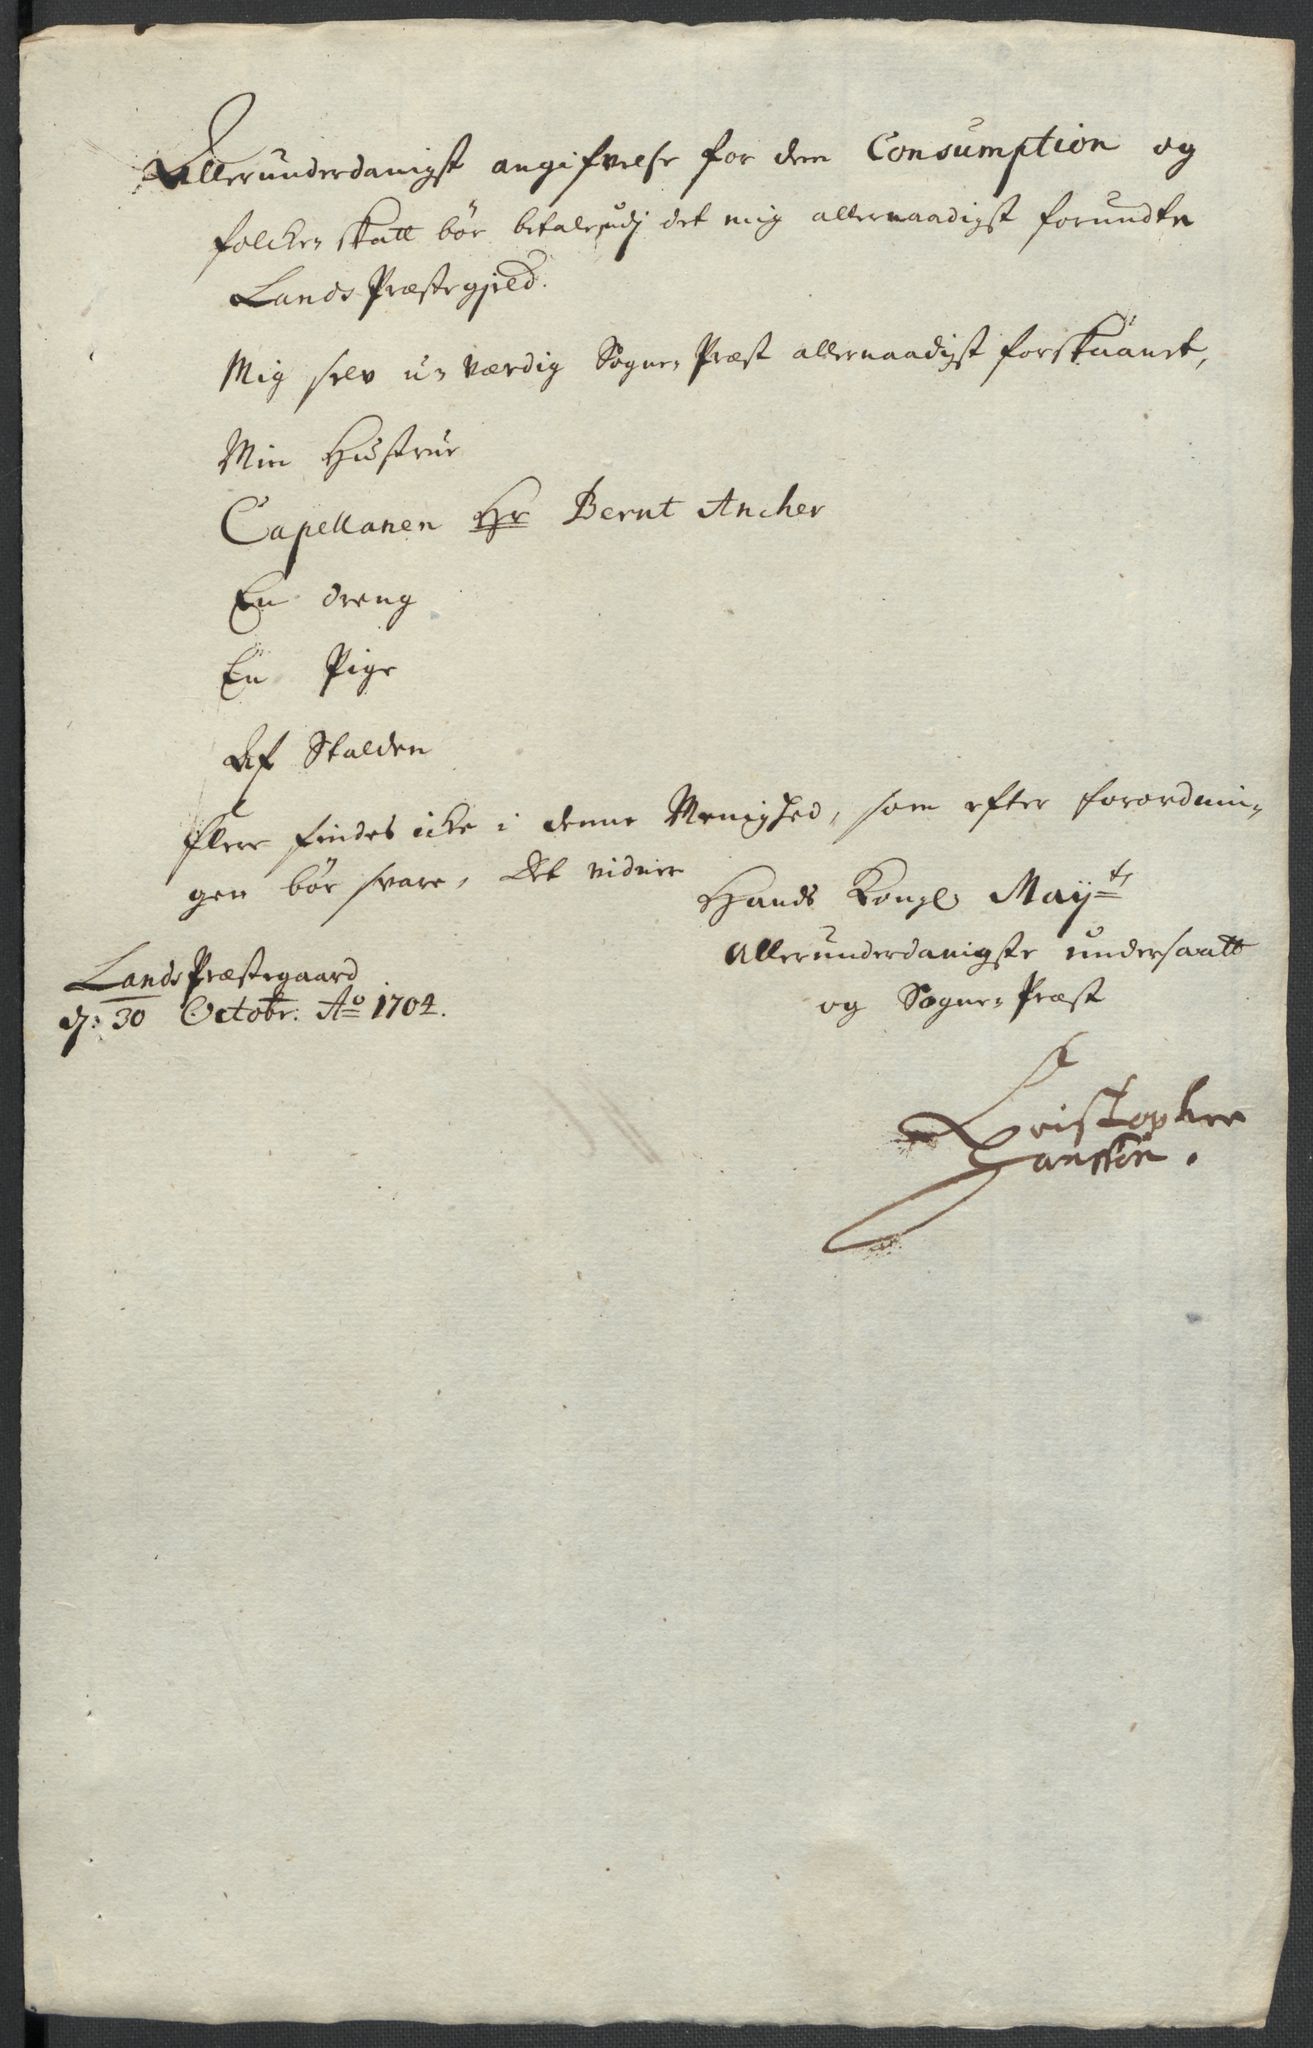 Allerunderdanigst angifvelse for dem Consumption og
folche- skatt bör betale, udj det mig allernaadigst forundte
Lands Præstegjeld.
Mig selv u-værdig Sogne-Præst allernaadigst forskaanet,
Min Hustrue
Capellanen Hr Bernt Ancher
En dreng
En Pige
Af Stalden
flere findes icke i denne Menighed, som efter forordnin-
gen bör svare, Det vidner
Hands Kongl. Mayts
Allerunderdanigste undersaatt
og Sogne-Præst
Lands Præstegaard
d: 30 Octobr. Ao 1704.
Christopher
Hanssön.